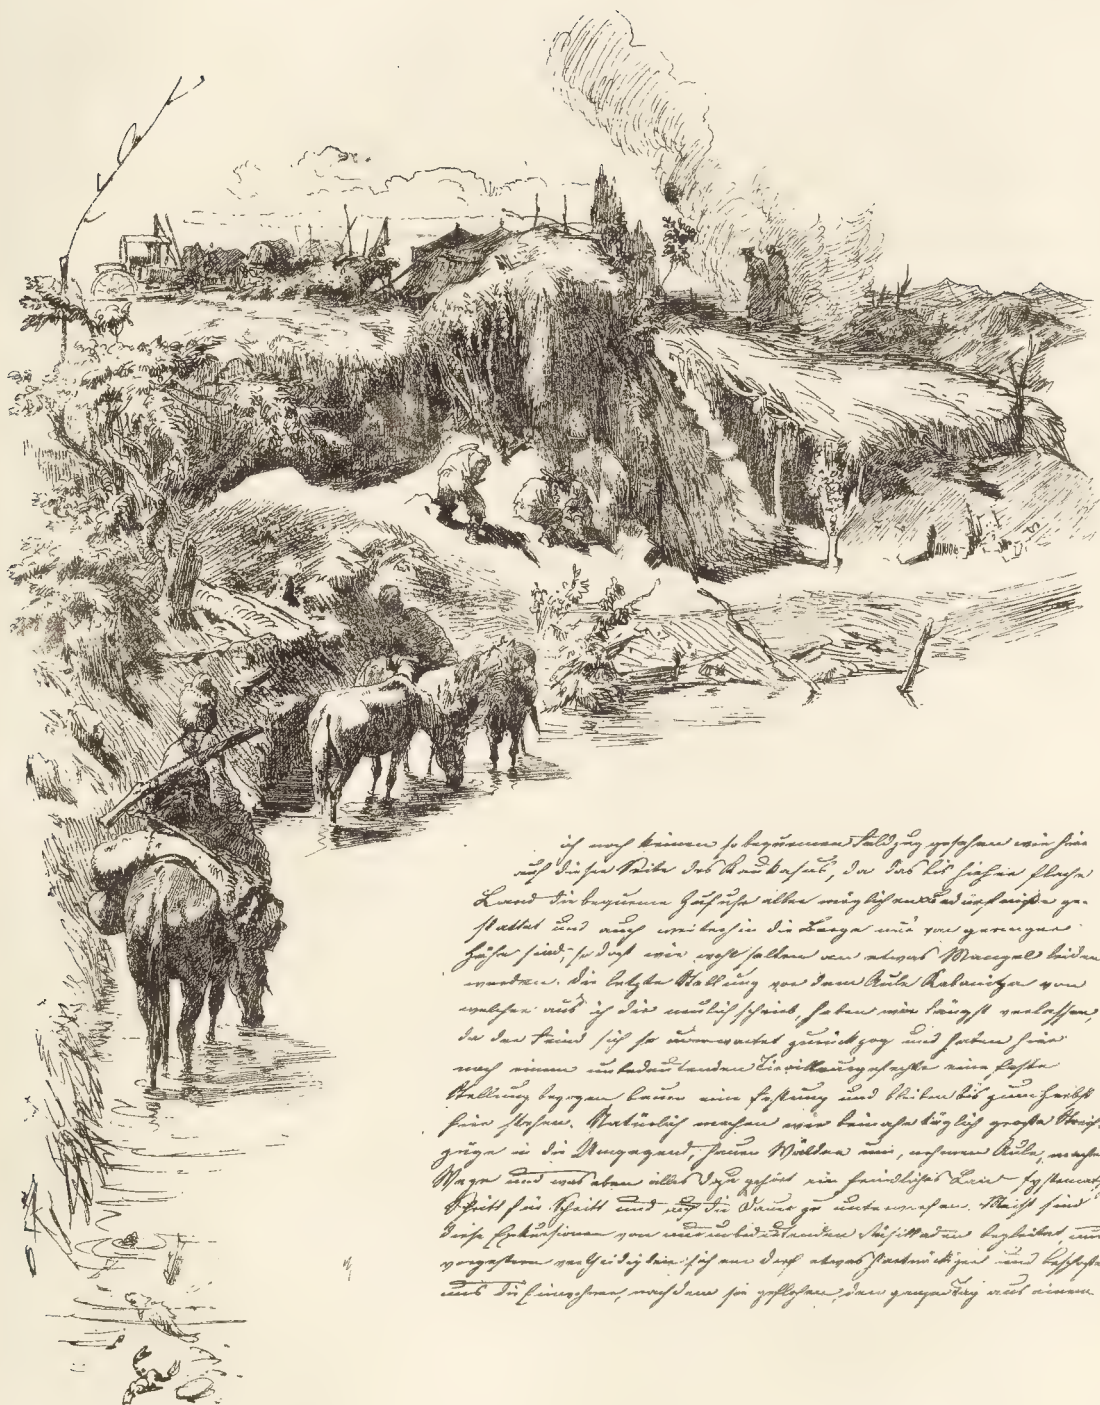 ich noch keinen so bequemen Feldzug gesehen wie hier
auf dieser Seite des Kaukasus, da das bis hieher flache
Land die bequeme Zufuhr aller möglichen Bedürfniße ge-
stattet und auch weiterhin die Berge nur von geringer
Höhe sind, so daß wir wohl selten an etwas Mangel leiden
werden. Die letzte Stellung vor dem Aule von
welcher aus ich dir neulich schrieb, haben wir längst verlassen,
da der Feind sich so unerwartet zurückzog und haben hier
nach einem unbedeutenden eine feste
Stellung bezogen bauen eine Festung und bleiben bis zum Herbst
hier stehen. Natürlich machen wir beinahe täglich große Streif-
züge in die Umgegend, hauen Wälder um, nehmen Aule, machen
Wege und was eben alles dazu gehört ein feindliches Land systemat.
Schritt für Schritt und auf die Dauer zu unterwerfen. Meist sind
diese Exkursionen von nur unbedeutenden begleitet, nur
vorgestern vertheidigten sich ein Dorf etwas hartnäckiger und beschoßen
uns die Einwohner, nachdem sie geflohen, den ganzen Tag aus einem